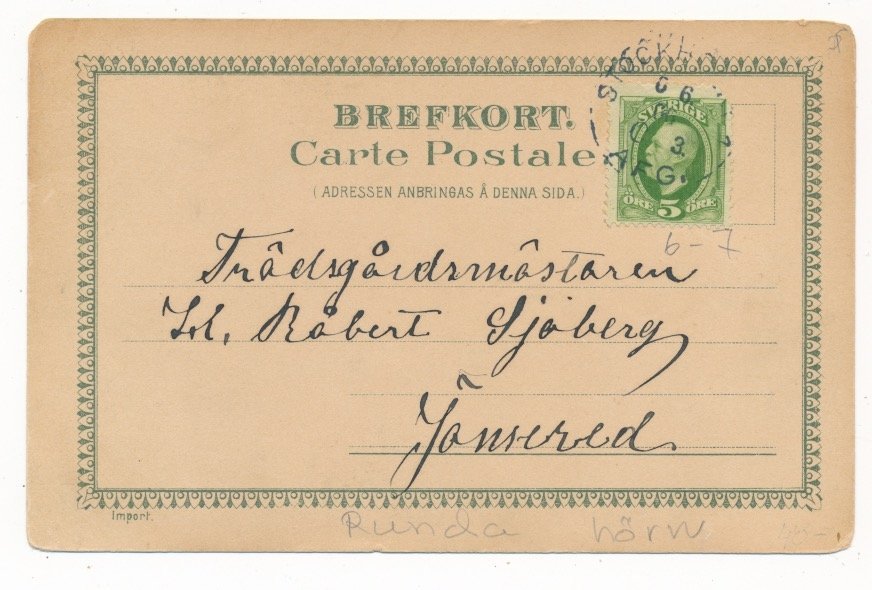 BREFKORT.
Carte Postale
(ADRESSEN ANBRINGAS Å DENNA SIDA.)
STOCKH
6 6
3.
AFG.
SVERIGE
ÖRE 5 ÖRE
6-7
Trädsgårdsmästaren
Hr. Robert Sjöberg
Jonsered
Import.
Runda hörn
40-